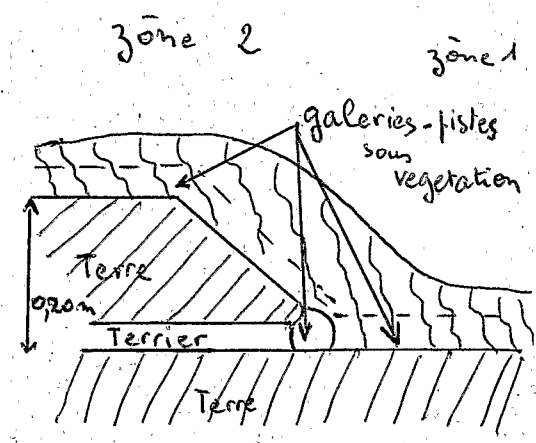 zône 2
zône 1
galeries-pistes
sous
vegetation
Terre
0,20m
Terrier
Terre